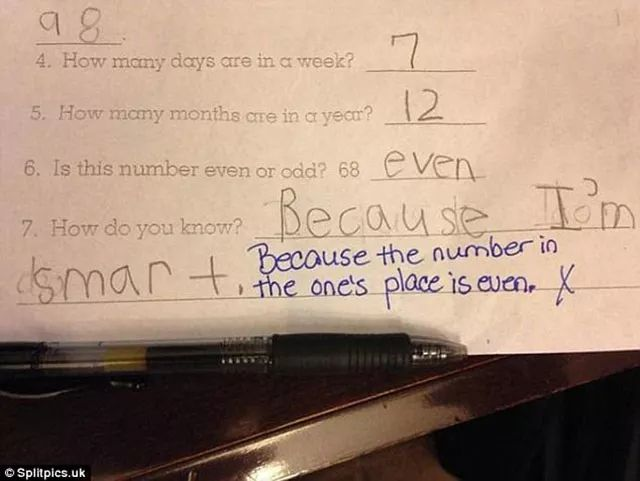 98
4. How many days are in a week? 7
5. How many months are in a year? 12
6. Is this number even or odd? 68 even
7. How do you know? Because I'm
smart.
Because the number in
the one's place is even. X
© Splitpics.uk